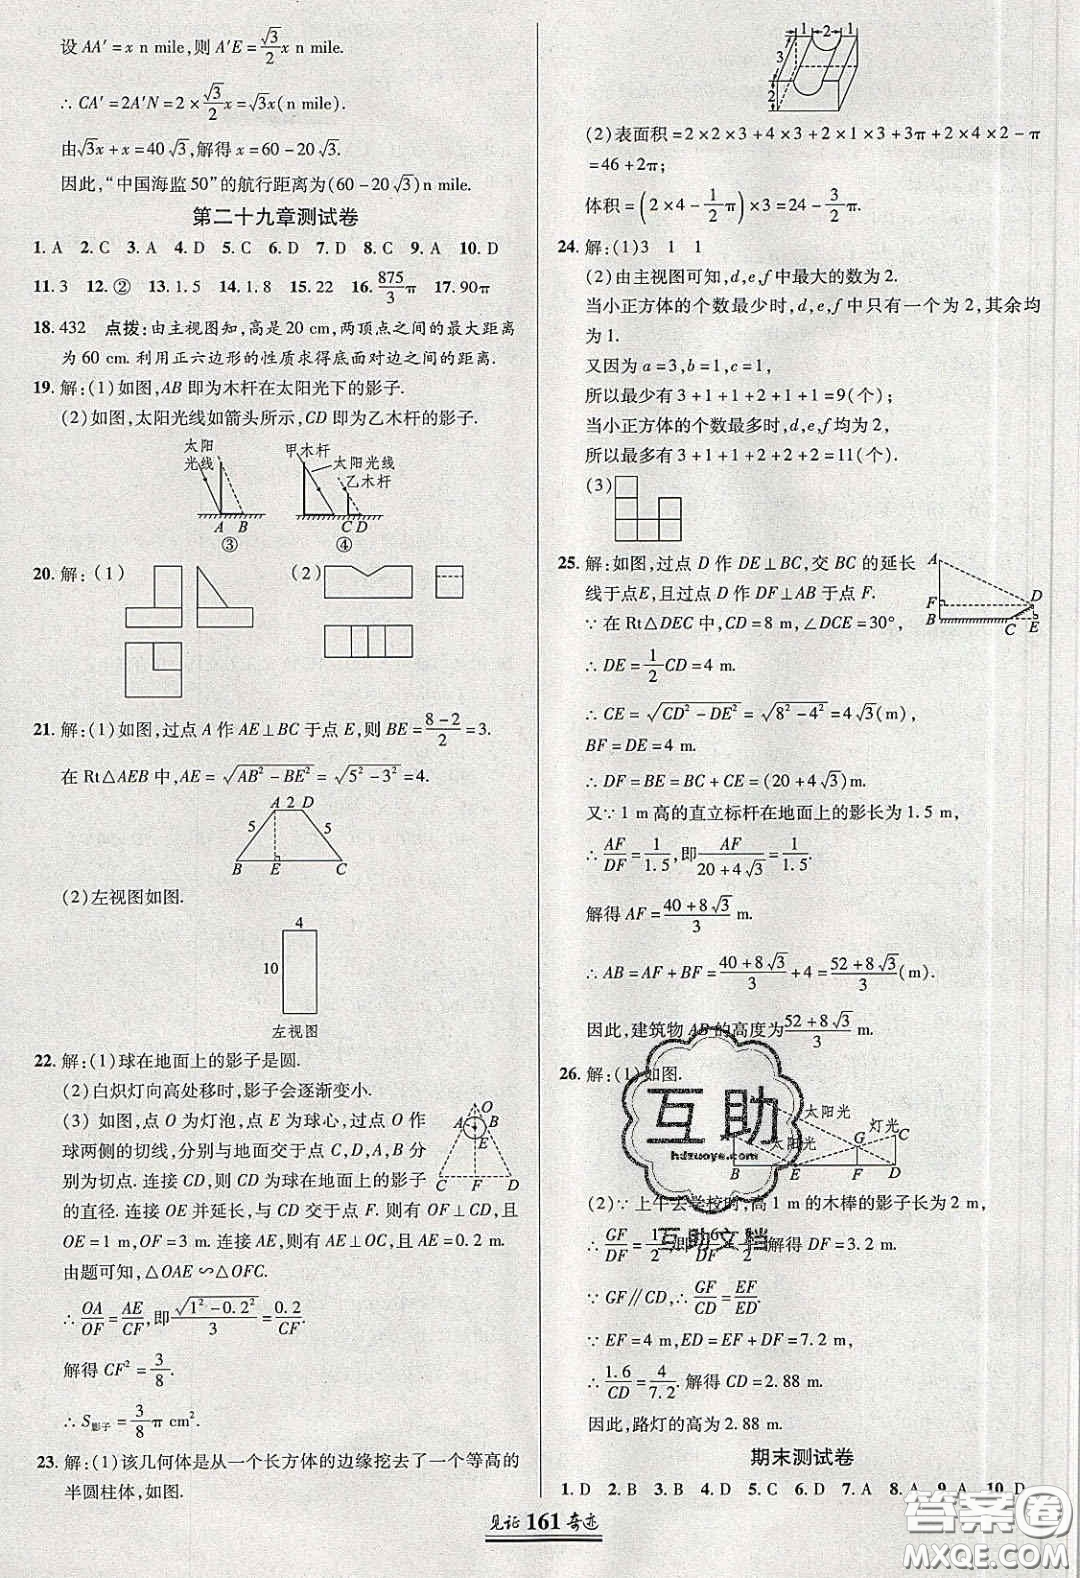 设 AA′=x n mile,则 A′E=√3/2 x n mile.
∴ CA′=2A′N=2×√3/2 x=√3x(n mile).
由√3x+x=40√3,解得 x=60-20√3.
因此,“中国海监50”的航行距离为(60-20√3)n mile.
第二十九章测试卷
1. A 2. C 3. A 4. D 5. C 6. D 7. D 8. C 9. A 10. D
11. 3 12. ② 13. 1.5 14. 1.8 15. 22 16. 875/3 π 17. 90π
18. 432 点拨:由主视图知,高是 20 cm,两顶点之间的最大距离
为 60 cm. 利用正六边形的性质求得底面对边之间的距离.
19. 解:(1)如图,AB 即为木杆在太阳光下的影子.
(2)如图,太阳光线如箭头所示,CD 即为乙木杆的影子.
太阳
光线
A B
③
甲木杆
太阳光线
乙木杆
C D
④
20. 解:(1)
(2)
21. 解:(1)如图,过点 A 作 AE⊥BC 于点 E,则 BE=(8-2)/2=3.
在 Rt△AEB 中,AE=√(AB²-BE²)=√(5²-3²)=4.
A 2 D
5 5
B E C
(2)左视图如图.
4
10
左视图
22. 解:(1)球在地面上的影子是圆.
(2)白炽灯向高处移时,影子会逐渐变小.
(3)如图,点 O 为灯泡,点 E 为球心,过点 O 作
球两侧的切线,分别与地面交于点 C,D,点 A,B
分别为切点. 连接 CD,则 CD 是球在地面的影子
的直径. 连接 OE 并延长,与 CD 交于点 F. 则有 OF⊥CD,且
OE=1 m,OF=3 m. 连接 AE,则有 AE⊥OC,且 AE=0.2 m.
由题可知,△OAE∽△OFC.
∴ OA/OF=AE/CF,即√(1²-0.2²)/3=0.2/CF.
解得 CF²=3/8.
∴ S影子=3/8 π cm².
O
A B
E
C F D
23. 解:(1)该几何体是从一个长方体的边缘挖去了一个等高的
半圆柱体,如图.
1 2 1
3
2
(2)表面积=2×2×3+4×3+2×1×3+3π+2×4×2-π
=46+2π;
体积=(2×4-1/2 π)×3=24-3/2 π.
24. 解:(1)3 1 1
(2)由主视图可知,d,e,f 中最大的数为 2.
当小正方体的个数最少时,d,e,f 中只有一个为 2,其余均
为 1.
又因为 a=3,b=1,c=1,
所以最少有 3+1+1+2+1+1=9(个);
当小正方体的个数最多时,d,e,f 均为 2,
所以最多有 3+1+1+2+2+2=11(个).
(3)
25. 解:如图,过点 D 作 DE⊥BC,交 BC 的延长
线于点E,且过点 D 作 DF⊥AB 于点 F.
∵ 在 Rt△DEC 中,CD=8 m,∠DCE=30°,
∴ DE=1/2 CD=4 m.
∴ CE=√(CD²-DE²)=√(8²-4²)=4√3(m),
BF=DE=4 m.
∴ DF=BE=BC+CE=(20+4√3)m.
又∵ 1 m 高的直立标杆在地面上的影长为 1.5 m,
∴ AF/DF=1/1.5,即AF/(20+4√3)=1/1.5.
解得 AF=(40+8√3)/3 m.
∴ AB=AF+BF=(40+8√3)/3+4=(52+8√3)/3(m).
因此,建筑物 AB 的高度为(52+8√3)/3 m.
A
F D
B C E
26. 解:(1)如图.
太阳光
太阳光
灯光
G C
B E F D
(2)∵ 上午去学校时,高 1 m 的木棒的影子长为 2 m,
∴ GF/DF=1/2,即1.6/DF=1/2,解得 DF=3.2 m.
∵ GF∥CD,∴ GF/CD=EF/ED.
∵ EF=4 m,ED=EF+DF=7.2 m,
∴ 1.6/CD=4/7.2. 解得 CD=2.88 m.
因此,路灯的高为 2.88 m.
期末测试卷
1. D 2. B 3. B 4. D 5. C 6. D 7. D 8. A 9. A 10. D
见证 161 奇迹
互助
hdzuoye.com
互助文档
答案圈
MXQE.COM